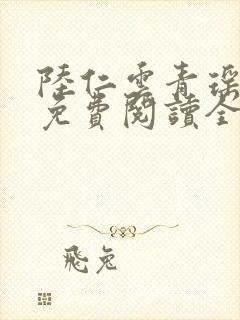 陸仁雲青瑶
免費閱讀全
飛兔